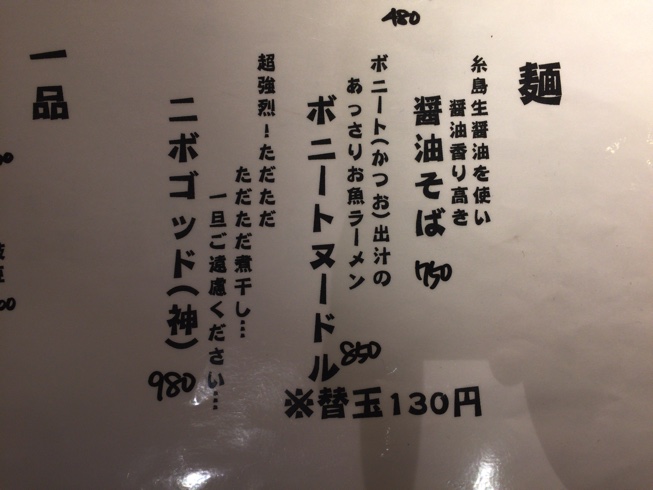 480
麺
糸島生醤油を使い
醤油香り高き
醤油そば 750
ボニート(かつお)出汁の
あっさりお魚ラーメン
ボニートヌードル 850
超強烈!ただただ
ただただ煮干し…
一旦ご遠慮ください…
ニボゴッド(神) 980
※替玉130円
一品